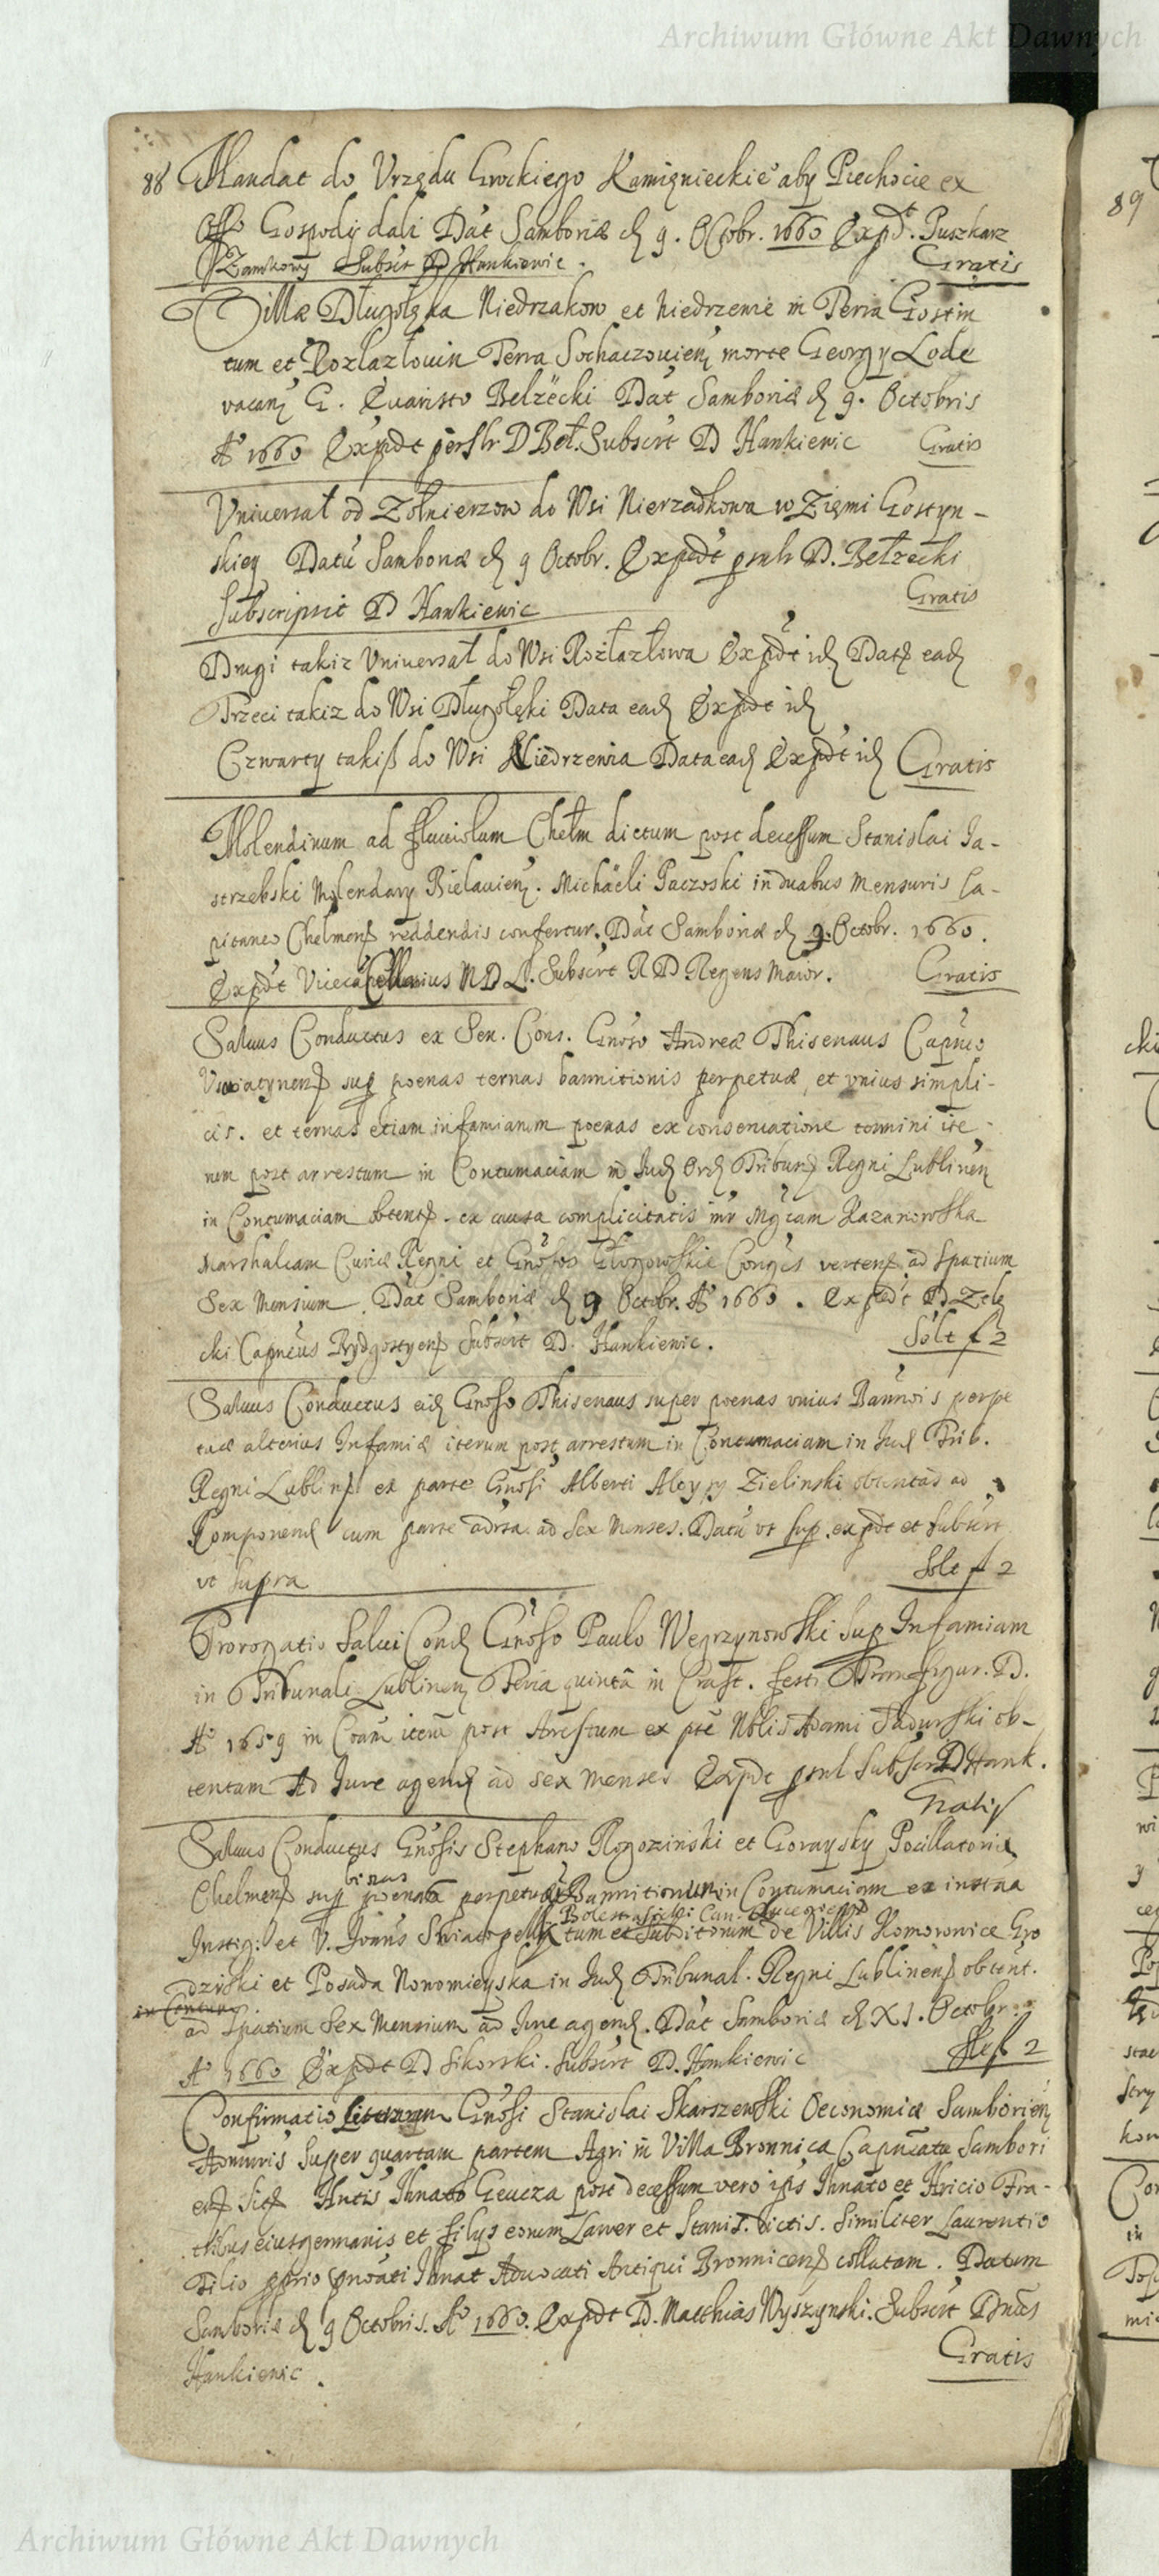 Archiwum Główne Akt Dawnych
88 Mandat do Urzędu Grockiego Kamięnieckiė aby Piechocie ex
Offo Gospody dali Dat Samboriæ d 9. Octobr. 1660 Expdt. Puszkarz
Zamkowy Subsct D Hankiewic. Gratis
Villæ Długołęka Niedrzakow et Niedrzenie in Terra Gostin
tum et Rozlazlowin Terra Sochaczouien morte Georgy Lode
vacan G. Evaristo Belzecki Dat Samboriæ d 9. Octobris
Ao 1660 Expdt D Beł. Subscrt D Hankiewic Gratis
Uniuersał od Zołnierzow do Wsi Nierzadkowa w Ziemi Gostyn-
skiey Datu Samboriæ d 9 Octobr. Expedt D. Bełzecki
Subscripsit D Hankiewic Gratis
Drugi takiz Uniuersał do Wsi Rozłazłowa Expdt id Data ead
Trzeci takiz do Wsi Długołęki Data ead Expdt id
Czwarty takiß do Wsi Niedrzewia Data ead Expdt id Gratis
Molendinum ad fluuiolum Chełm dictum post decessum Stanislai Ja-
strzebski Molendary Bielauien. Michaeli Paczoski in duabus mensuris Ca-
pitaneo Chelmen reddendis confertur. Dat Samboriæ d 9. Octobr. 1660.
Expdt Vicecancellarius M D L. Subscrt R D Regens Maior. Gratis
Saluus Conductus ex Sen. Cons. Gnoso Andreæ Thisenaus Capneo
sup poenas ternas bannitionis perpetuæ, et unius simpli-
cis. et ternas etiam infamiarum poenas ex conseruatione termini ite-
rum post arrestum in Contumaciam in Jud Ord Tribun Regni Lublinen
in Contumaciam obtent. ex causa complicitatis intr Mgcam Kazanowska
Marshalcam Curiæ Regni et Gnosos Głogowskie Conges verten ad spatium
Sex Mensium. Dat Samboriæ d 9 Octobr. Ao 1660. Expedt D Zele
cki Capneus Bydgostyen Subscrt D. Hankiewic. Solt f 2
Saluus Conductus eid Gnoso Thisenaus super poenas unius Bannois perpe
tuæ alterius Infamiæ iterum post arrestum in Contumaciam in Jud Trib.
Regni Lublin ex parte Gnosi Alberti Zielinski obtentas ad
Componend cum parte adusa ad Sex Menses. Datu ut sup. expdt et subscrt
ut supra Solt f 2
Prorogatio Salui Cond Gnoso Paulo Węgrzynowski sup Infamiam
in Tribunali Lublinen Feria quinta in Crast. festi Transfigur. D.
Ao 1659 in Coam iteru post Arestum ex pte Nblis Adami Sadurski ob-
tentam Ad Jure agend ad sex menses Expdt Subscr D Hank.
Gratis
Saluus Conductus Gnosis Stephano Rogozinski et Goraysky Pocillatorid
binas
Chelmen sup poenas perpetuæ Bannitionum in Contumaciam ex instna
Instig. et V. Joannis Swiatopelk Bolestraszicki Can. Luceorien
tum et Subditorum de Villis Komorowice Gro
dziski et Posada Nonomieyska in Jud Tribunal. Regni Lublinen obtent.
in Contum.
ad spatium Sex Mensium ad Jure agend. Dat Samboriæ d XI. Octobr.
Ao 1660 Expdt D Sikorski. Subscrt D. Hankiewic Slt f 2
Confirmatio Literarum Gnosi Stanislai Skarszewski Oeconomiæ Samborien
Admris Super quartam partem Agri in Villa Bronnica Capneatu Sambori
en sit Hutis Ihnato Geucza post decessum vero ipis Ihnato et Hricio Fra-
tribus eius germanis et filys eorum Lawer et Stanis. dictis. Similiter Laurentio
Filio pprio pnoati Ihnat Aduocati Antiqui Bronnicen collatam. Datum
Samboriæ d 9 Octobris. Ao 1660. Expdt D. Matthias Wyszynski. Subscrt Dnus
Hankiewic. Gratis
89
Archiwum Główne Akt Dawnych